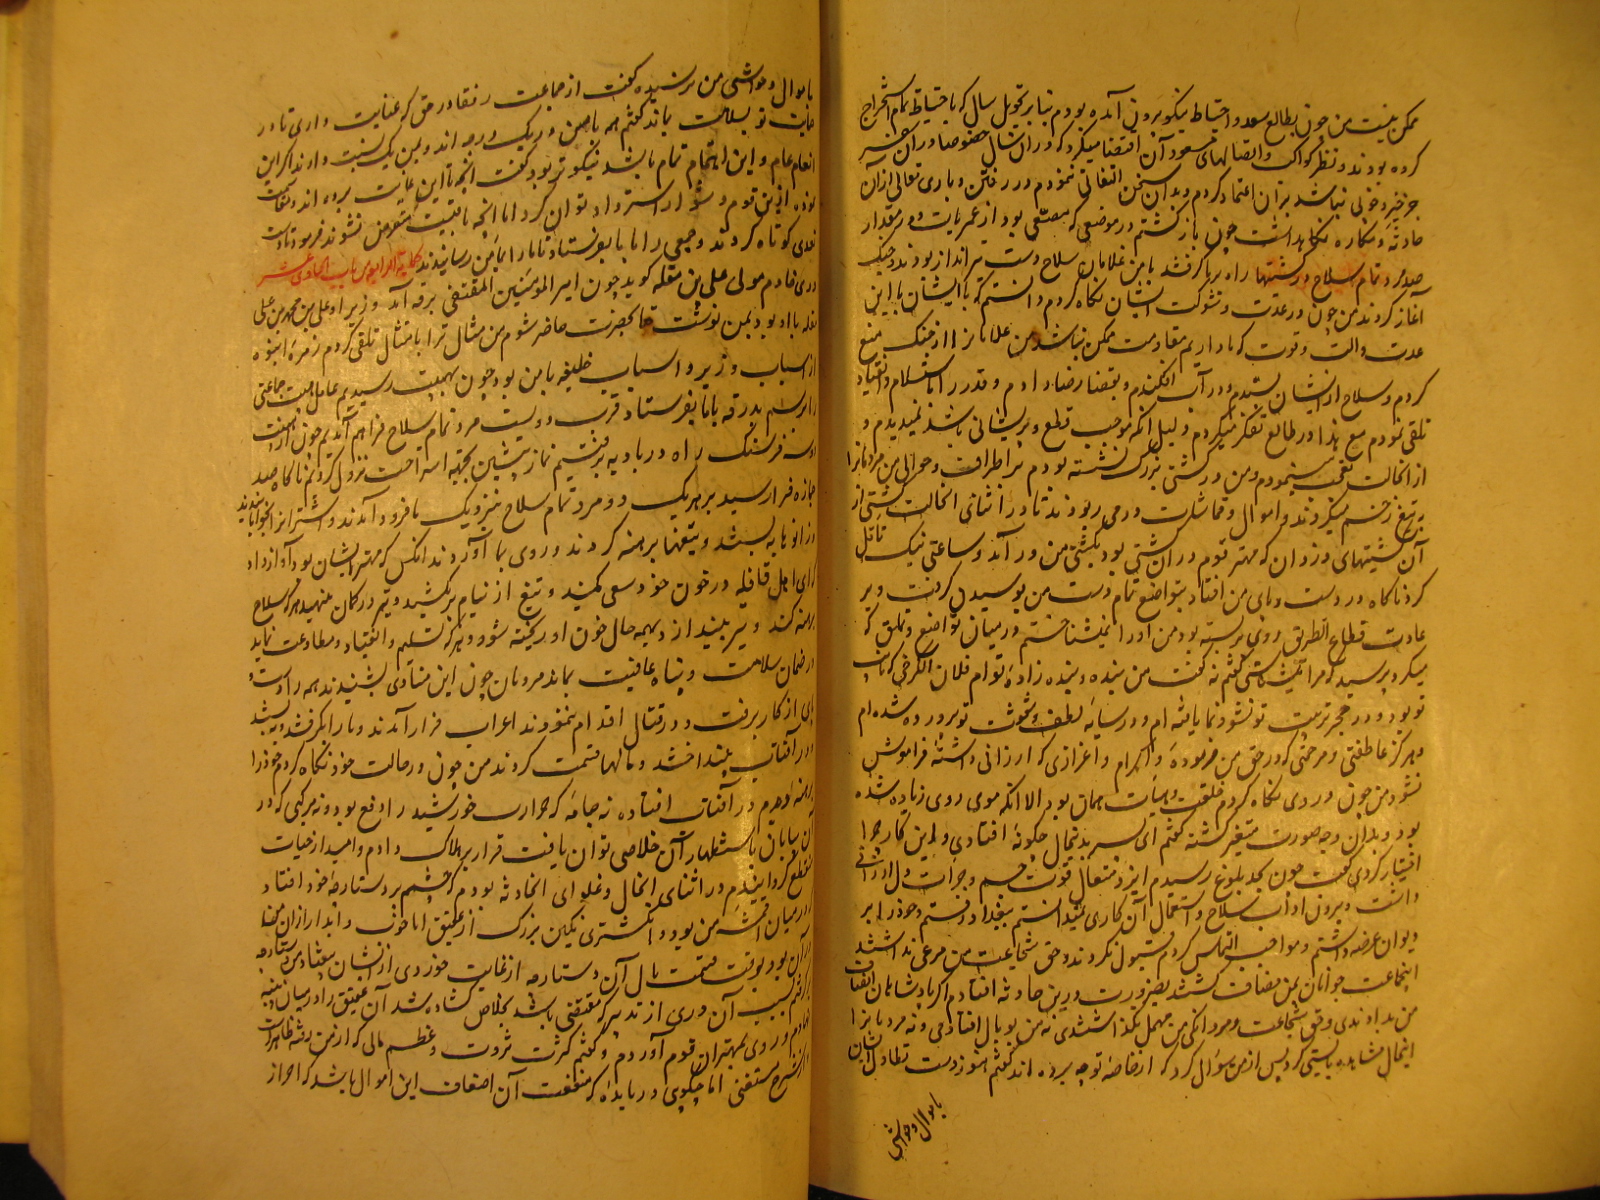 ممکن نیست من چون بطالع سعد و احتیاط نیکو برون آمده بودم بنا بر تحویل سال که باحتیاط تمام استخراج
کرده بودند و نظر کواکب و اتصالهای مسعود آن اقتضا میکرد که در آن سال خصوصا در آن سفر
جز خیر و خوبی نباشد بر آن اعتماد کردم و بدان سخن التفاتی ننمودم و در رفتن و باری تعالی از آن
حادثه و مکاره نگاه داشت چون بازگشتم در موضعی که بود از عمرانات دور مقدار
صد مرد تمام سلاح در کشتیها راه بر ما گرفتند با من غلامان سلاح دست تیرانداز بودند جنگ
آغاز کردند من چون در عدت و شوکت ایشان نگاه کردم دانستم که با ایشان با این
عدت و آلت و قوت که ما داریم مقاومت ممکن نباشد من غلامانرا از جنگ منع
کردم و سلاح از ایشان بستدم و در آب افکندم و بقضا رضا دادم و قدر را باستسلام و انقیاد
تلقی نمودم مع هذا در طالع تفکر میکردم و دلیل آنکه موجب قطع و پریشانی باشد نمیدیدم و
از آن حالت تعجب مینمودم و من در کشتی بزرگ نشسته بودم بر اطراف و حوالی من مردمانرا
بتیغ زخم میکردند و اموال و قماشات درمی ربودند تا در اثنای آن حالت کشتی از
آن کشتیهای دزدان که مهتر قوم در آن کشتی بود بکشتی من در آمد و ساعتی نیک تأمل
کرد ناگاه در دست و پای من افتاد بتواضع تمام دست من بوسیدن گرفت و بر
عادت قطاع الطریق روی بربسته بود من او را نمیشناختم در میان تواضع و تملق که
میکرد پرسید که مرا میشناسی گفتم نه گفت من بنده و بنده زاده توام فلان الکرخی که نایب
تو بود و در حجر تربیت تو نشو و نما یافته ام و در سایه لطف و تو پرورده شده ام
و هرگز عاطفتی و مرحمتی که در حق من فرموده و اکرام و اعزازی که ارزانی داشته فراموش
نشود من چون در وی نگاه کردم خلقت و هیأت همان بود الا آنکه موی روی زیاده شده
بود و بدان وجه صورت متغیر گشته گفتم ای سرهنگ حال چگونه افتادی و این کار چرا
اختیار کردی گفت چون بحد بلوغ رسیدم ایزد متعال قوت جسم و جرات دل ارزانی
داشت و بیرون آداب سلاح و استعمال آن کاری نمیدانستم ببغداد رفتم و خود را بر
دیوان عرضه داشتم و مواجب التماس کردم قبول نکردند و حق شجاعت من مرعی نداشتند
این جماعت جوانان بمن مضاف گشتند بضرورت درین حادثه افتادم اگر پادشاهان انصاف
من بدادندی و حق شجاعت و مردانگی من مهمل نگذاشتندی نه من بوبال افتادمی و نه مردمانرا
این حال مشاهده بایستی کرد پس از من سؤال کرد که از خاصه تو چه برده اند گفتم هنوز دست تطاول ایشان
باموال و حواشی
باموال و حواشی من نرسیده گفت از جماعت رفقا در حق که عنایت داری تا در
حمایت تو بسلامت بماند گفتم همه با من در یک درجه اند و بمن یک نسبت دارند اگر این
انعام عام و این اهتمام تمام باشد نیکوتر بود گفت آنچه تا این غایت برده اند
بوده ازین قوم دشوار استرداد توان کرد اما آنچه باقیست متعرض نشوند فرمود تا دست
تعدی کوتاه کردند و جمعی را با ما بفرستاد تا ما را بمأمن رسانیدند حکایة الرابع من باب الحادی عشر
دری خادم مولی علی بن مقله گوید چون امیر المومنین المقتفی برقه آمد وزیر او علی بن محمد بن علی
مقله با او بود بمن نوشت تا بحضرت حاضر شوم من مثال ترا بامتثال تلقی کردم زمره انبوه
از اسباب وزیر و اسباب خلیفه با من بود چون بهیت رسیدیم عامل هیت جماعتی
را برسم بدرقه با ما بفرستاد قرب دویست مرد تمام سلاح فراهم آمدیم چون از هیت
دو سه فرسنگ راه در بادیه برفتیم نماز پیشین بجهة استراحت نزول کردیم ناگاه صد
جمازه فرا رسید بر هر یک دو مرد تمام سلاح نزدیک ما فرود آمدند و اشترانرا بخوابانیدند
و زانوها ببستند و تیغها برهنه کردند و روی بما آوردند آنکس که مهتر ایشان بود آواز داد
که ای اهل قافله در خون خود سعی کمنید و تیغ از نیام برمکشید و تیر در کمان منهید هر که سلاح
برهنه کند و تیر بیندازد بهمه حال خون او ریخته شود و هر که تسلیم و انقیاد و مطاوعت نماید
در ضمان سلامت و پناه عافیت بماند مردمان چون این منادی بشنیدند همه را دست و
پای از کار برفت و در قتال اقدام ننمودند اعراب فراز آمدند و ما را بگرفتند و ببستند
و در آفتاب بینداختند و مالها قسمت کردند من چون در حالت خود نگاه کردم خود را
برهنه دیدم در آفتاب افتاده نه جامه که حرارت خورشید را دفع بود و نه مرکبی که در
آن بیابان باستظهار آن خلاصی توان یافت قرار بر هلاک دادم و امید از حیات
منقطع گردانیدم در اثنای آن حال و غلوای آن حادثه بودم که چشمم بر دستارچه خود افتاد
در میان اقمشه من بود و انگشتری نگین بزرگ از عقیق
در آن بود بوقت قسمت مال آن دستارچه از غایت خوردی از ایشان بیفتاد من دستارچه
برداشتم بسبب آن دری از تدبیر که مقتضی باشد بخلاص گشاده شد آن عقیق را در میان پنبه
نهادم و روی بمهتران قوم آوردم و گفتم کثرت ثروت و عظم مالی که از من رفته ظاهرست
و از شرح مستغنی اما چگویی در مایده که منفعت آن اضعاف این اموال باشد که احراز